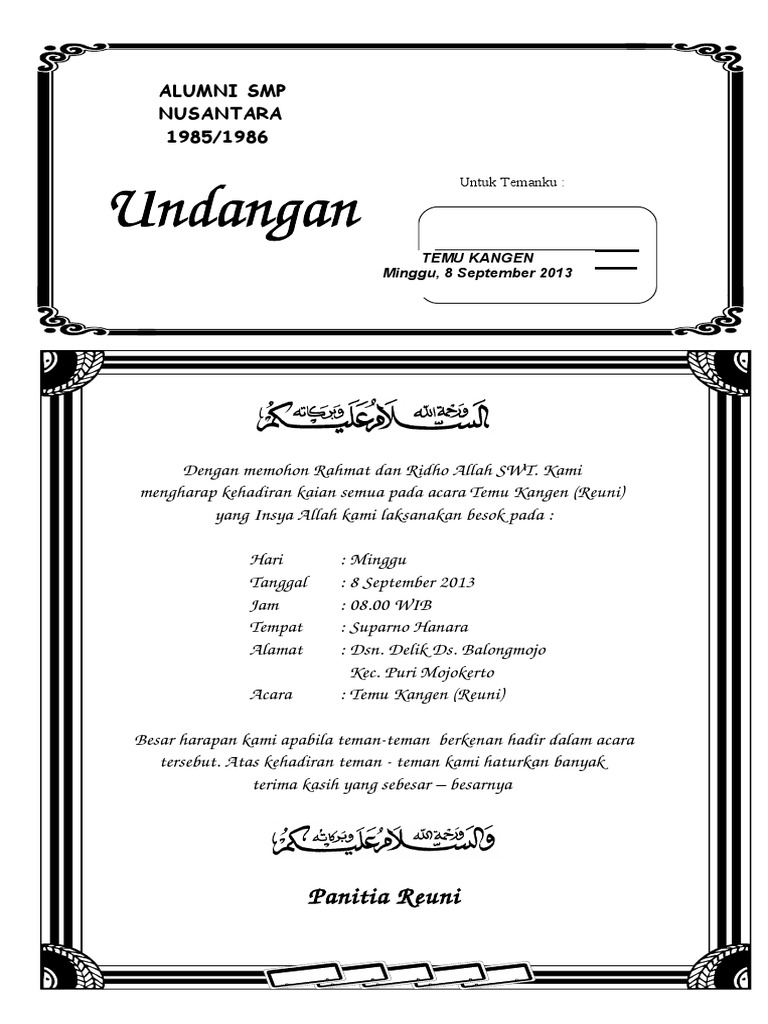 ALUMNI SMP
NUSANTARA
1985/1986
Undangan
Untuk Temanku :
TEMU KANGEN
Minggu, 8 September 2013
السلام عليكم ورحمة الله وبركاته
Dengan memohon Rahmat dan Ridho Allah SWT. Kami
mengharap kehadiran kaian semua pada acara Temu Kangen (Reuni)
yang Insya Allah kami laksanakan besok pada :
Hari : Minggu
Tanggal : 8 September 2013
Jam : 08.00 WIB
Tempat : Suparno Hanara
Alamat : Dsn. Delik Ds. Balongmojo
Kec. Puri Mojokerto
Acara : Temu Kangen (Reuni)
Besar harapan kami apabila teman-teman berkenan hadir dalam acara
tersebut. Atas kehadiran teman - teman kami haturkan banyak
terima kasih yang sebesar – besarnya
والسلام عليكم ورحمة الله وبركاته
Panitia Reuni